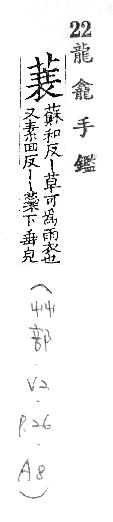 22 龍龕手鑑
蓑 蘇和反丨草可爲雨衣也
又素回反丨丨藥下垂皃
(艸部.V2.P.26.A8)